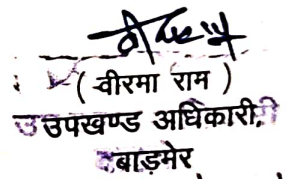 ( वीरमा राम )
उपखण्ड अधिकारी,
बाड़मेर